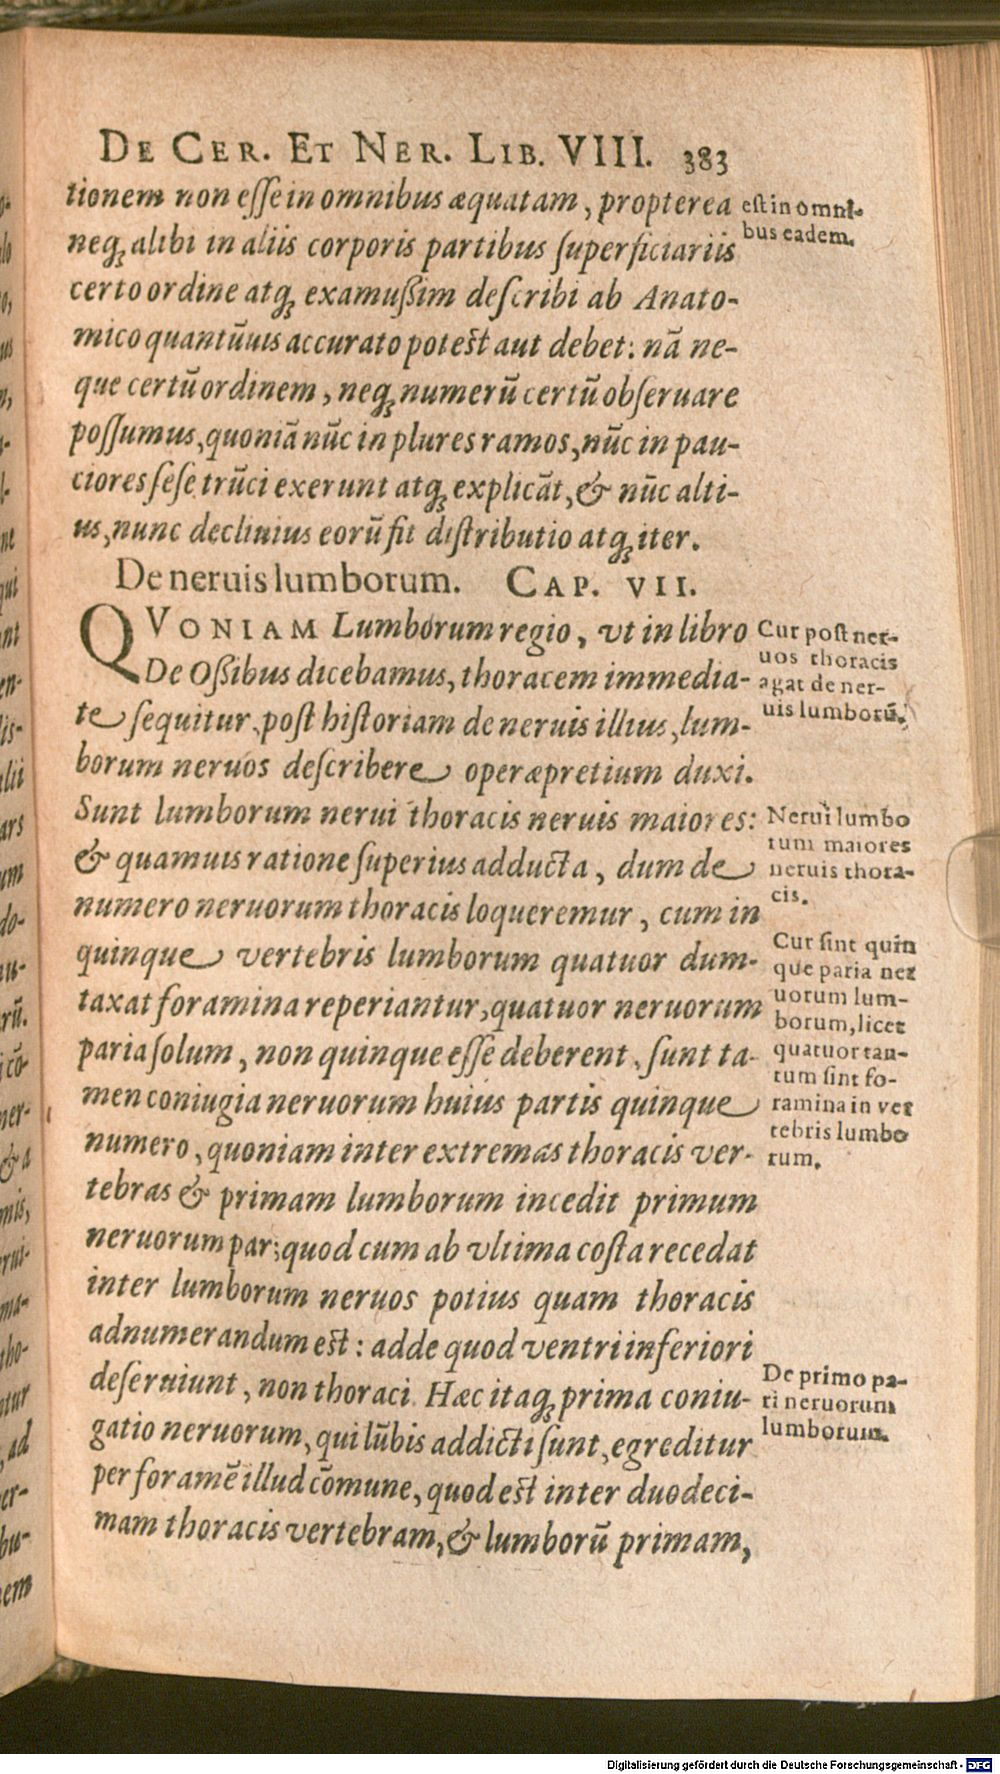 DE CER. ET NER. LIB. VIII. 383
tionem non esse in omnibus æquatam, propterea
neq́; alibi in aliis corporis partibus superficiariis
certo ordine atq́; examußim describi ab Anato-
mico quantũuis accurato potest aut debet: nã ne-
que certũ ordinem, neq́; numerũ certũ obseruare
possumus, quoniã nũc in plures ramos, nũc in pau-
ciores sese trũci exerunt atq́; explicãt, & nũc alti-
us, nunc decliuius eorũ fit distributio atq́; iter.
est in omni-
bus eadem.
De neruis lumborum. CAP. VII.
QVONIAM Lumborum regio, vt in libro
De Oßibus dicebamus, thoracem immedia-
te sequitur, post historiam de neruis illius, lum-
borum neruos describere operæpretium duxi.
Sunt lumborum nerui thoracis neruis maiores:
& quamuis ratione superius adducta, dum de
numero neruorum thoracis loqueremur, cum in
quinque vertebris lumborum quatuor dum-
taxat foramina reperiantur, quatuor neruorum
paria solum, non quinque esse deberent, sunt ta-
men coniugia neruorum huius partis quinque
numero, quoniam inter extremas thoracis ver-
tebras & primam lumborum incedit primum
neruorum par; quod cum ab vltima costa recedat
inter lumborum neruos potius quam thoracis
adnumerandum est: adde quod ventri inferiori
deseruiunt, non thoraci. Hæc itaq́; prima coniu-
gatio neruorum, qui lũbis addicti sunt, egreditur
per foramẽ illud cõmune, quod est inter duodeci-
mam thoracis vertebram, & lumborũ primam,
Cur post ner-
uos thoracis
agat de ner-
uis lumborũ.
Nerui lumbo
rum maiores
neruis thora-
cis.
Cur sint quin
que paria ner
uorum lum-
borum, licet
quatuor tan-
tum sint fo-
ramina in ver
tebris lumbo
rum.
De primo pa-
ri neruorum
lumborum.
Digitalisierung gefördert durch die Deutsche Forschungsgemeinschaft - DFG